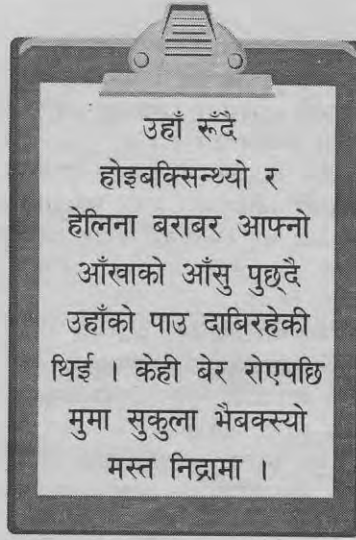 उहाँ रूँदै
होइबक्सिन्थ्यो र
हेलिना बराबर आफ्नो
आँखाको आँसु पुछ्दै
उहाँको पाउ दाबिरहेकी
थिई । केही बेर रोएपछि
मुमा सुकुला भैबक्स्यो
मस्त निद्रामा ।